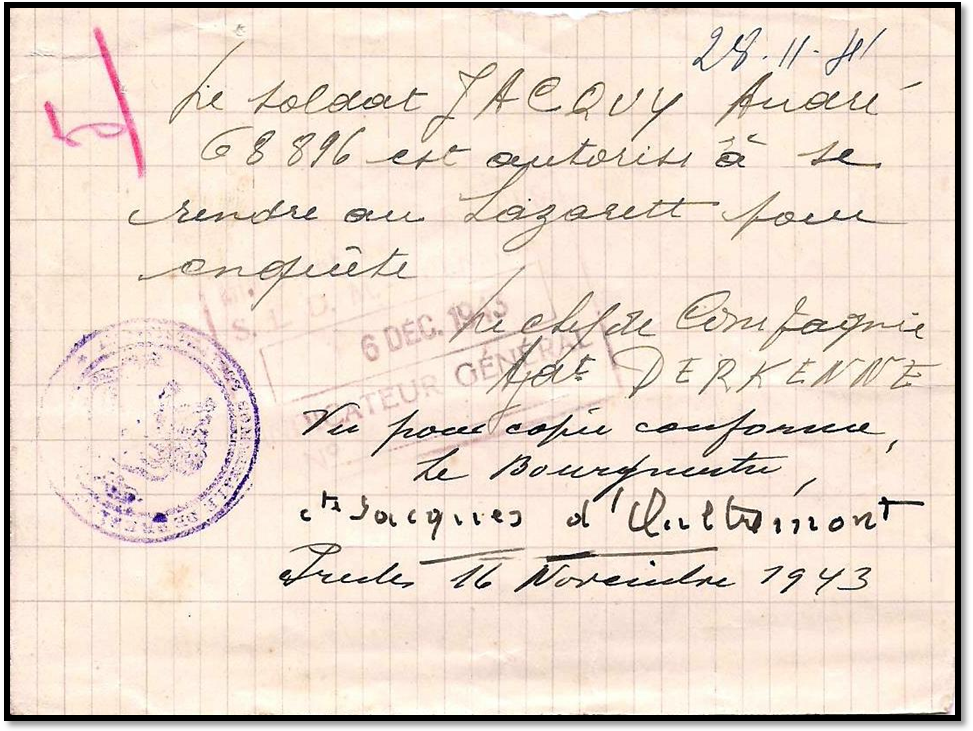 28-11-41
Le soldat JACQUY André
68896 est autorisé à se
rendre au Lazarett pour
enquête
S. I. D. N.
6 DÉC. 1943
GÉNÉRAL
N°
Le chef de Compagnie
Adt DERKENNE
Vu pour copie conforme,
Le Bourgmestre,
cte Jacques d'Oultremont
16 Novembre 1943